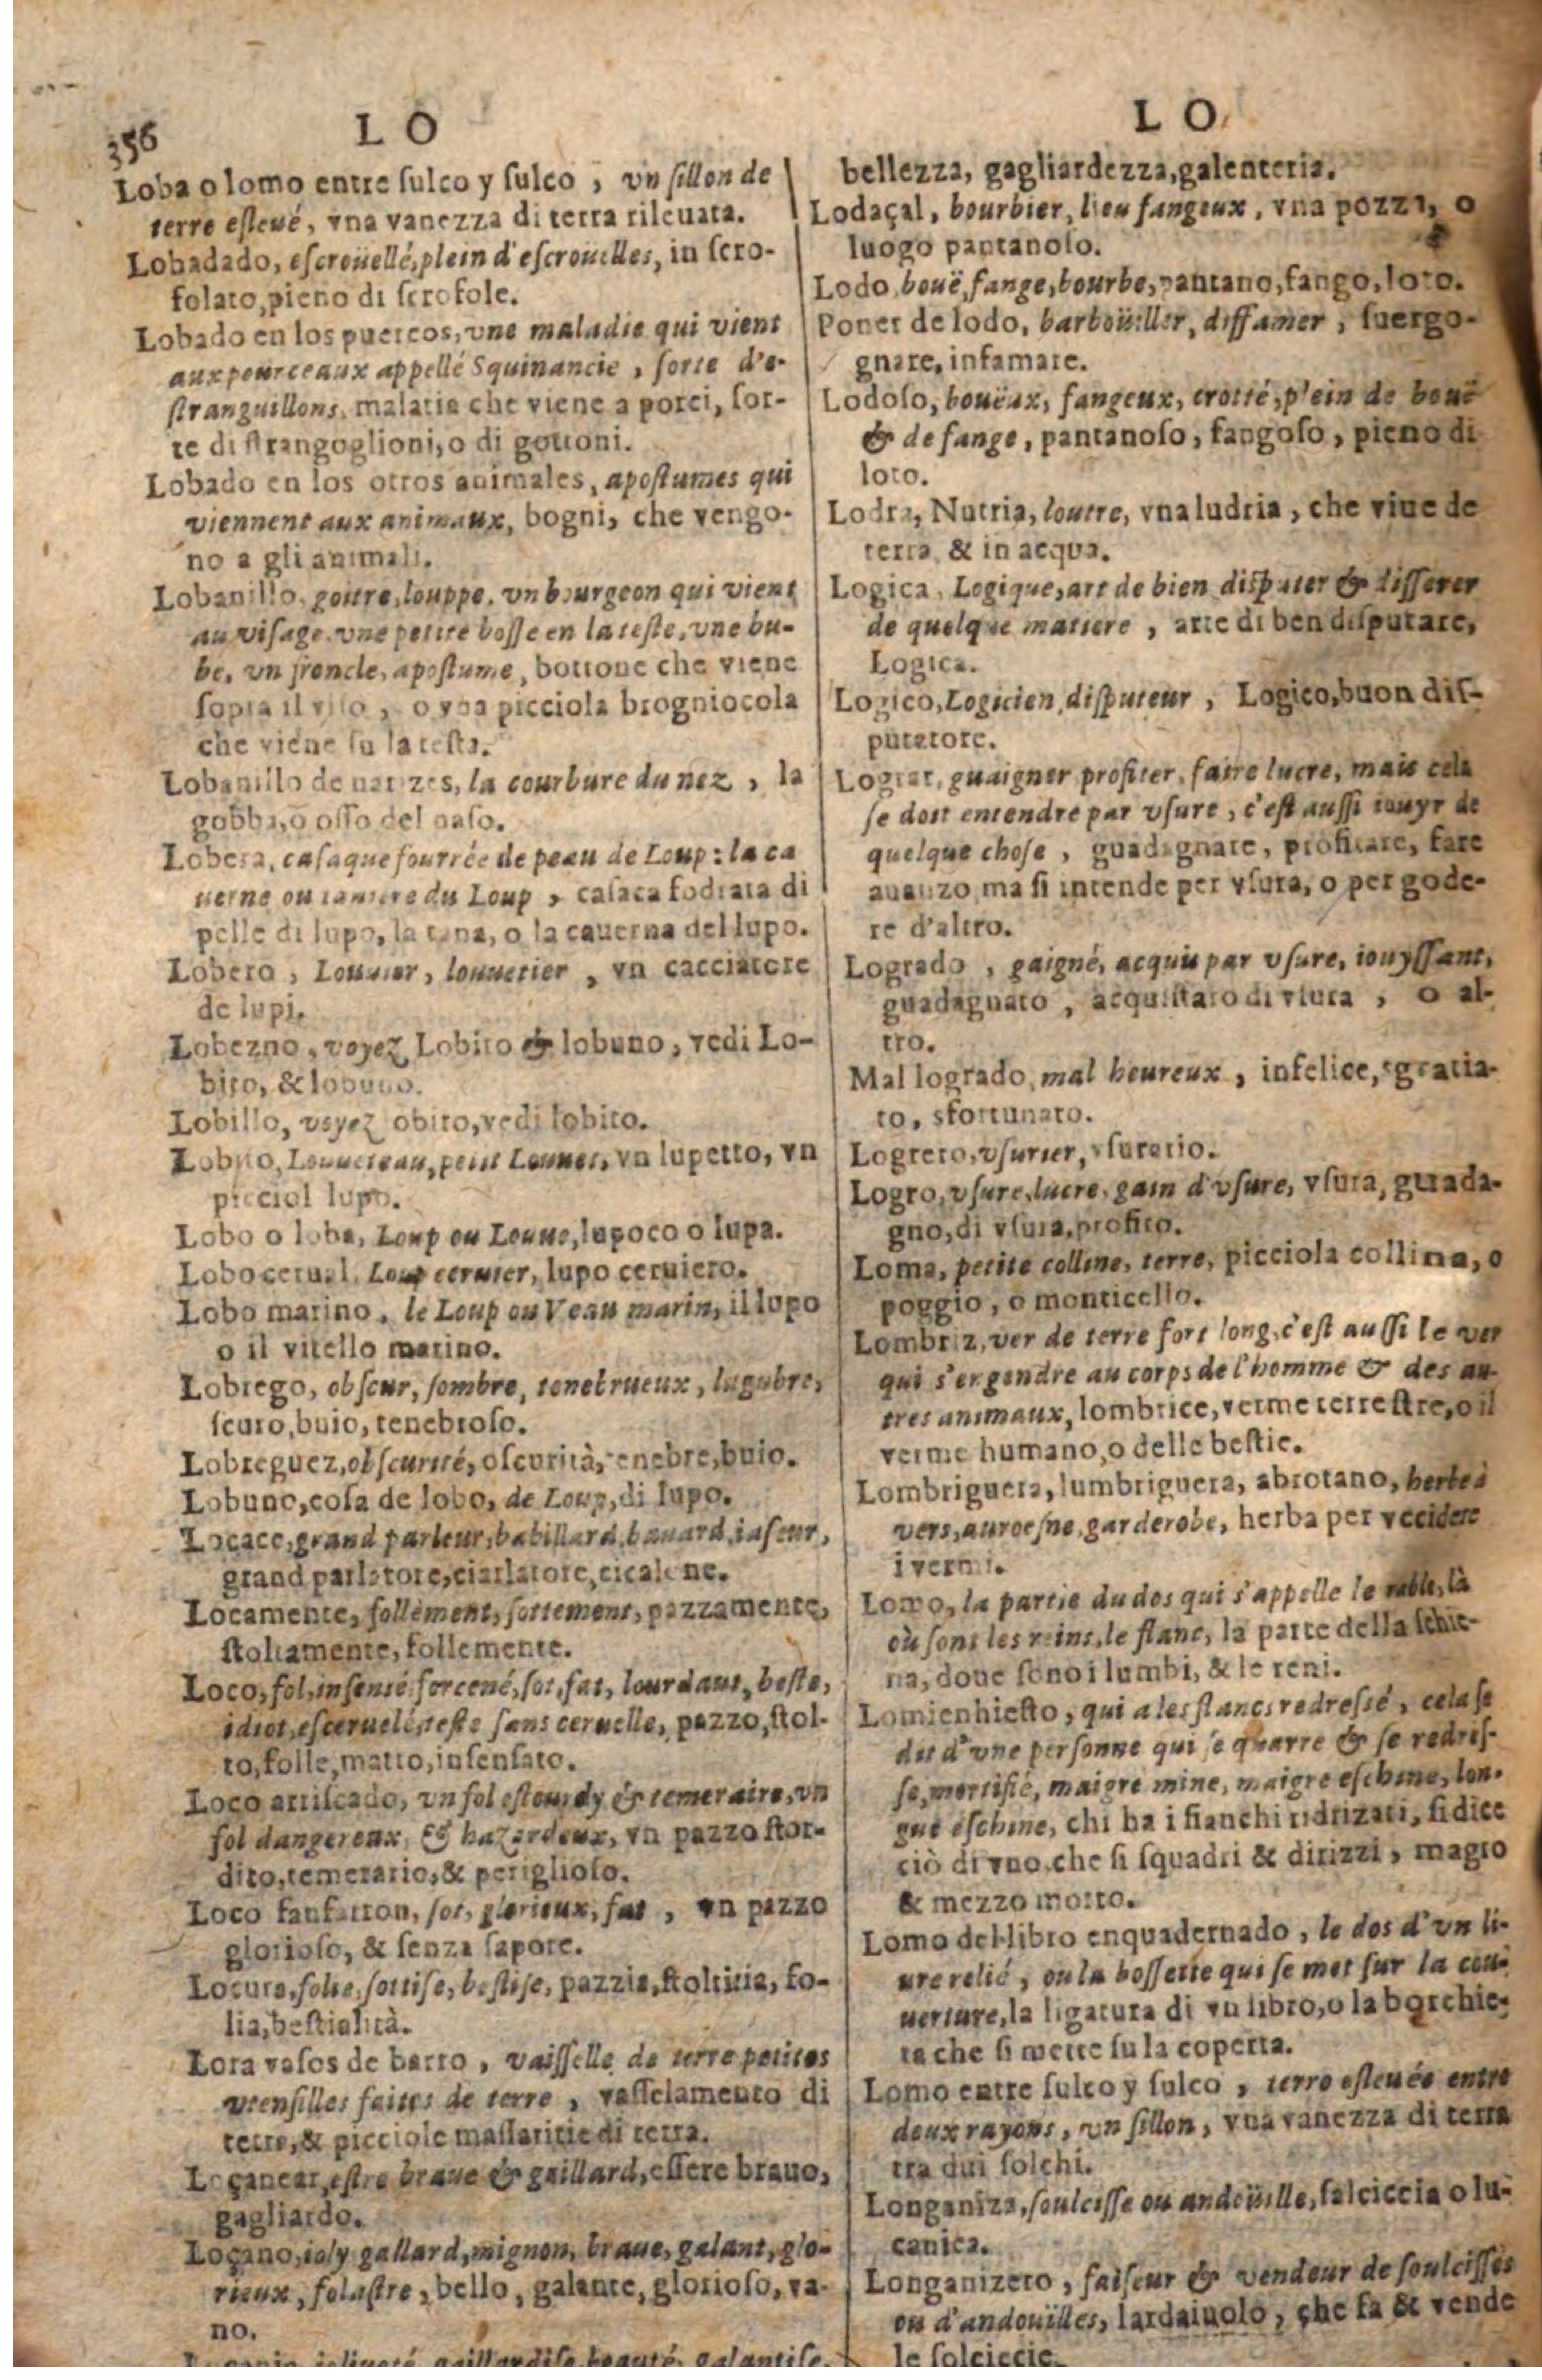 356
LO
Loba o lomo entre ſulco y ſulco, vn ſillon de
terre eſleué, vna vanezza di terra rileuata.
Lobadado, eſcroüellé, plein d'eſcrouelles, in ſcro-
folato, pieno di ſcrofole.
Lobado en los puercos, vne maladie qui vient
aux pourceaux appellé Squinancie, ſorte d'e-
ſtranguillons, malatia che viene a porci, ſor-
te di ſtrangoglioni, o di gottoni.
Lobado en los otros animales, apoſtumes qui
viennent aux animaux, bogni, che vengo-
no a gli animali.
Lobanillo, goitre, louppe, vn bourgeon qui vient
au viſage, vne petite boſſe en la teſte, vne bu-
be, vn froncle, apoſtume, bottone che viene
ſopra il viſo, o vna picciola brogniocola
che viene ſu la teſta.
Lobanillo de narizes, la courbure du nez, la
gobba, o oſſo del naſo.
Lobera, caſaque fourrée de peau de Loup: la ca
uerne ou taniere du Loup, caſaca fodrata di
pelle di lupo, la tana, o la cauerna del lupo.
Lobero, Louuier, louuetier, vn cacciatore
de lupi.
Lobezno, voyez Lobito & lobuno, vedi Lo-
bito, & lobuno.
Lobillo, voyez obito, vedi lobito.
Lobito, Louueteau, petit Louuet, vn lupetto, vn
picciol lupo.
Lobo o loba, Loup ou Louue, lupoco o lupa.
Lobo cerual, Loup ceruier, lupo ceruiero.
Lobo marino, le Loup ou Veau marin, il lupo
o il vitello marino.
Lobrego, obſcur, ſombre, tenebrueux, lugubre,
ſcuro, buio, tenebroſo.
Lobreguez, obſcurité, oſcurità, tenebre, buio.
Lobuno, coſa de lobo, de Loup, di lupo.
Locace, grand parleur, babillard, bauard, iaſeur,
grand parlatore, ciarlatore, cicalone.
Locamente, follement, ſottement, pazzamente,
ſtoltamente, follemente.
Loco, fol, inſensé, forcené, ſot, fat, lourdaut, beſte,
idiot, eſceruelé, teſte ſans ceruelle, pazzo, ſtol-
to, folle, matto, inſenſato.
Loco arriſcado, vn fol eſtourdy & temeraire, vn
fol dangereux, & hazardeux, vn pazzo ſtor-
dito, temerario, & periglioſo.
Loco fanfarron, ſot, glorieux, fat, vn pazzo
glorioſo, & ſenza ſapore.
Locura, folie, ſottiſe, beſtiſe, pazzia, ſtoltitia, fo-
lia, beſtialità.
Lora vaſos de barro, vaiſſelle de terre petites
vtenſilles faites de terre, vaſſelamento di
terre, & picciole maſſaritie di terra.
Loçanear, eſtre braue & gaillard, eſſere brauo,
gagliardo.
Loçano, ioly gallard, mignon, braue, galant, glo-
rieux, folaſtre, bello, galante, glorioſo, va-
no.
ioliueté, gaillardiſe, beauté, galantiſe,
LO
bellezza, gagliardezza, galenteria.
Lodaçal, bourbier, lieu fangeux, vna pozza, o
luogo pantanoſo.
Lodo, bouë, fange, bourbe, pantano, fango, loto.
Poner de lodo, barboüiller, diffamer, ſuergo-
gnare, infamare.
Lodoſo, bouëux, fangeux, crotté, plein de bouë
& de fange, pantanoſo, fangoſo, pieno di
loto.
Lodra, Nutria, loutre, vna ludria, che viue de
terra & in acqua.
Logica, Logique, art de bien diſputer & differer
de quelque matiere, arte di ben diſputare,
Logica.
Logico, Logicien, diſputeur, Logico, buon diſ-
putatore.
Lograr, guaigner profiter, faire lucre, mais cela
ſe doit entendre par vſure, c'eſt auſſi iouyr de
quelque choſe, guadagnare, profitare, fare
auanzo, ma ſi intende per vſura, o per gode-
re d'altro.
Logrado, gaigné, acquis par vſure, iouyſſant,
guadagnato, acquiſtato di vſura, o al-
tro.
Mal logrado, mal heureux, infelice, sgratia-
to, sfortunato.
Logrero, vſurier, vſurario.
Logro, vſure, lucre, gain d'vſure, vſura, guada-
gno, di vſura, profito.
Loma, petite colline, terre, picciola collina, o
poggio, o monticello.
Lombriz, ver de terre fort long, c'eſt auſſi le ver
qui s'engendre au corps de l'homme & des au-
tres animaux, lombrice, verme terreſtre, o il
verme humano, o delle beſtie.
Lombriguera, lumbriguera, abrotano, herbe à
vers, auroeſne, garderobe, herba per vccidere
i vermi.
Lomo, la partie du dos qui s'appelle le rable, là
où ſont les reins, le flanc, la parte della ſchie-
na, doue ſono i lumbi, & le reni.
Lomienhieſto, qui a les flancs redreſſé, cela ſe
dit d'vne perſonne qui ſe quarre & ſe redreſ-
ſe, mortifié, maigre mine, maigre eſchine, lon-
gue eſchine, chi ha i fianchi ridrizati, ſi dice
ciò di vno che ſi ſquadri & dirizzi, magro
& mezzo morto.
Lomo del libro enquadernado, le dos d'vn li-
ure relié, ou la boſſette qui ſe met ſur la cou-
uerture, la ligatura di vn libro, o la borchie-
ta che ſi mette ſu la coperta.
Lomo entre ſulco y ſulco, terre eſleuée entre
deux rayons, vn ſillon, vna vanezza di terra
tra dui ſolchi.
Longaniza, ſoulciſſe ou andoüille, ſalciccia o lu-
canica.
Longanizero, faiſeur & vendeur de ſoulciſſes
ou d'andouïlles, lardaiuolo, che fa & vende
le ſolciccie.